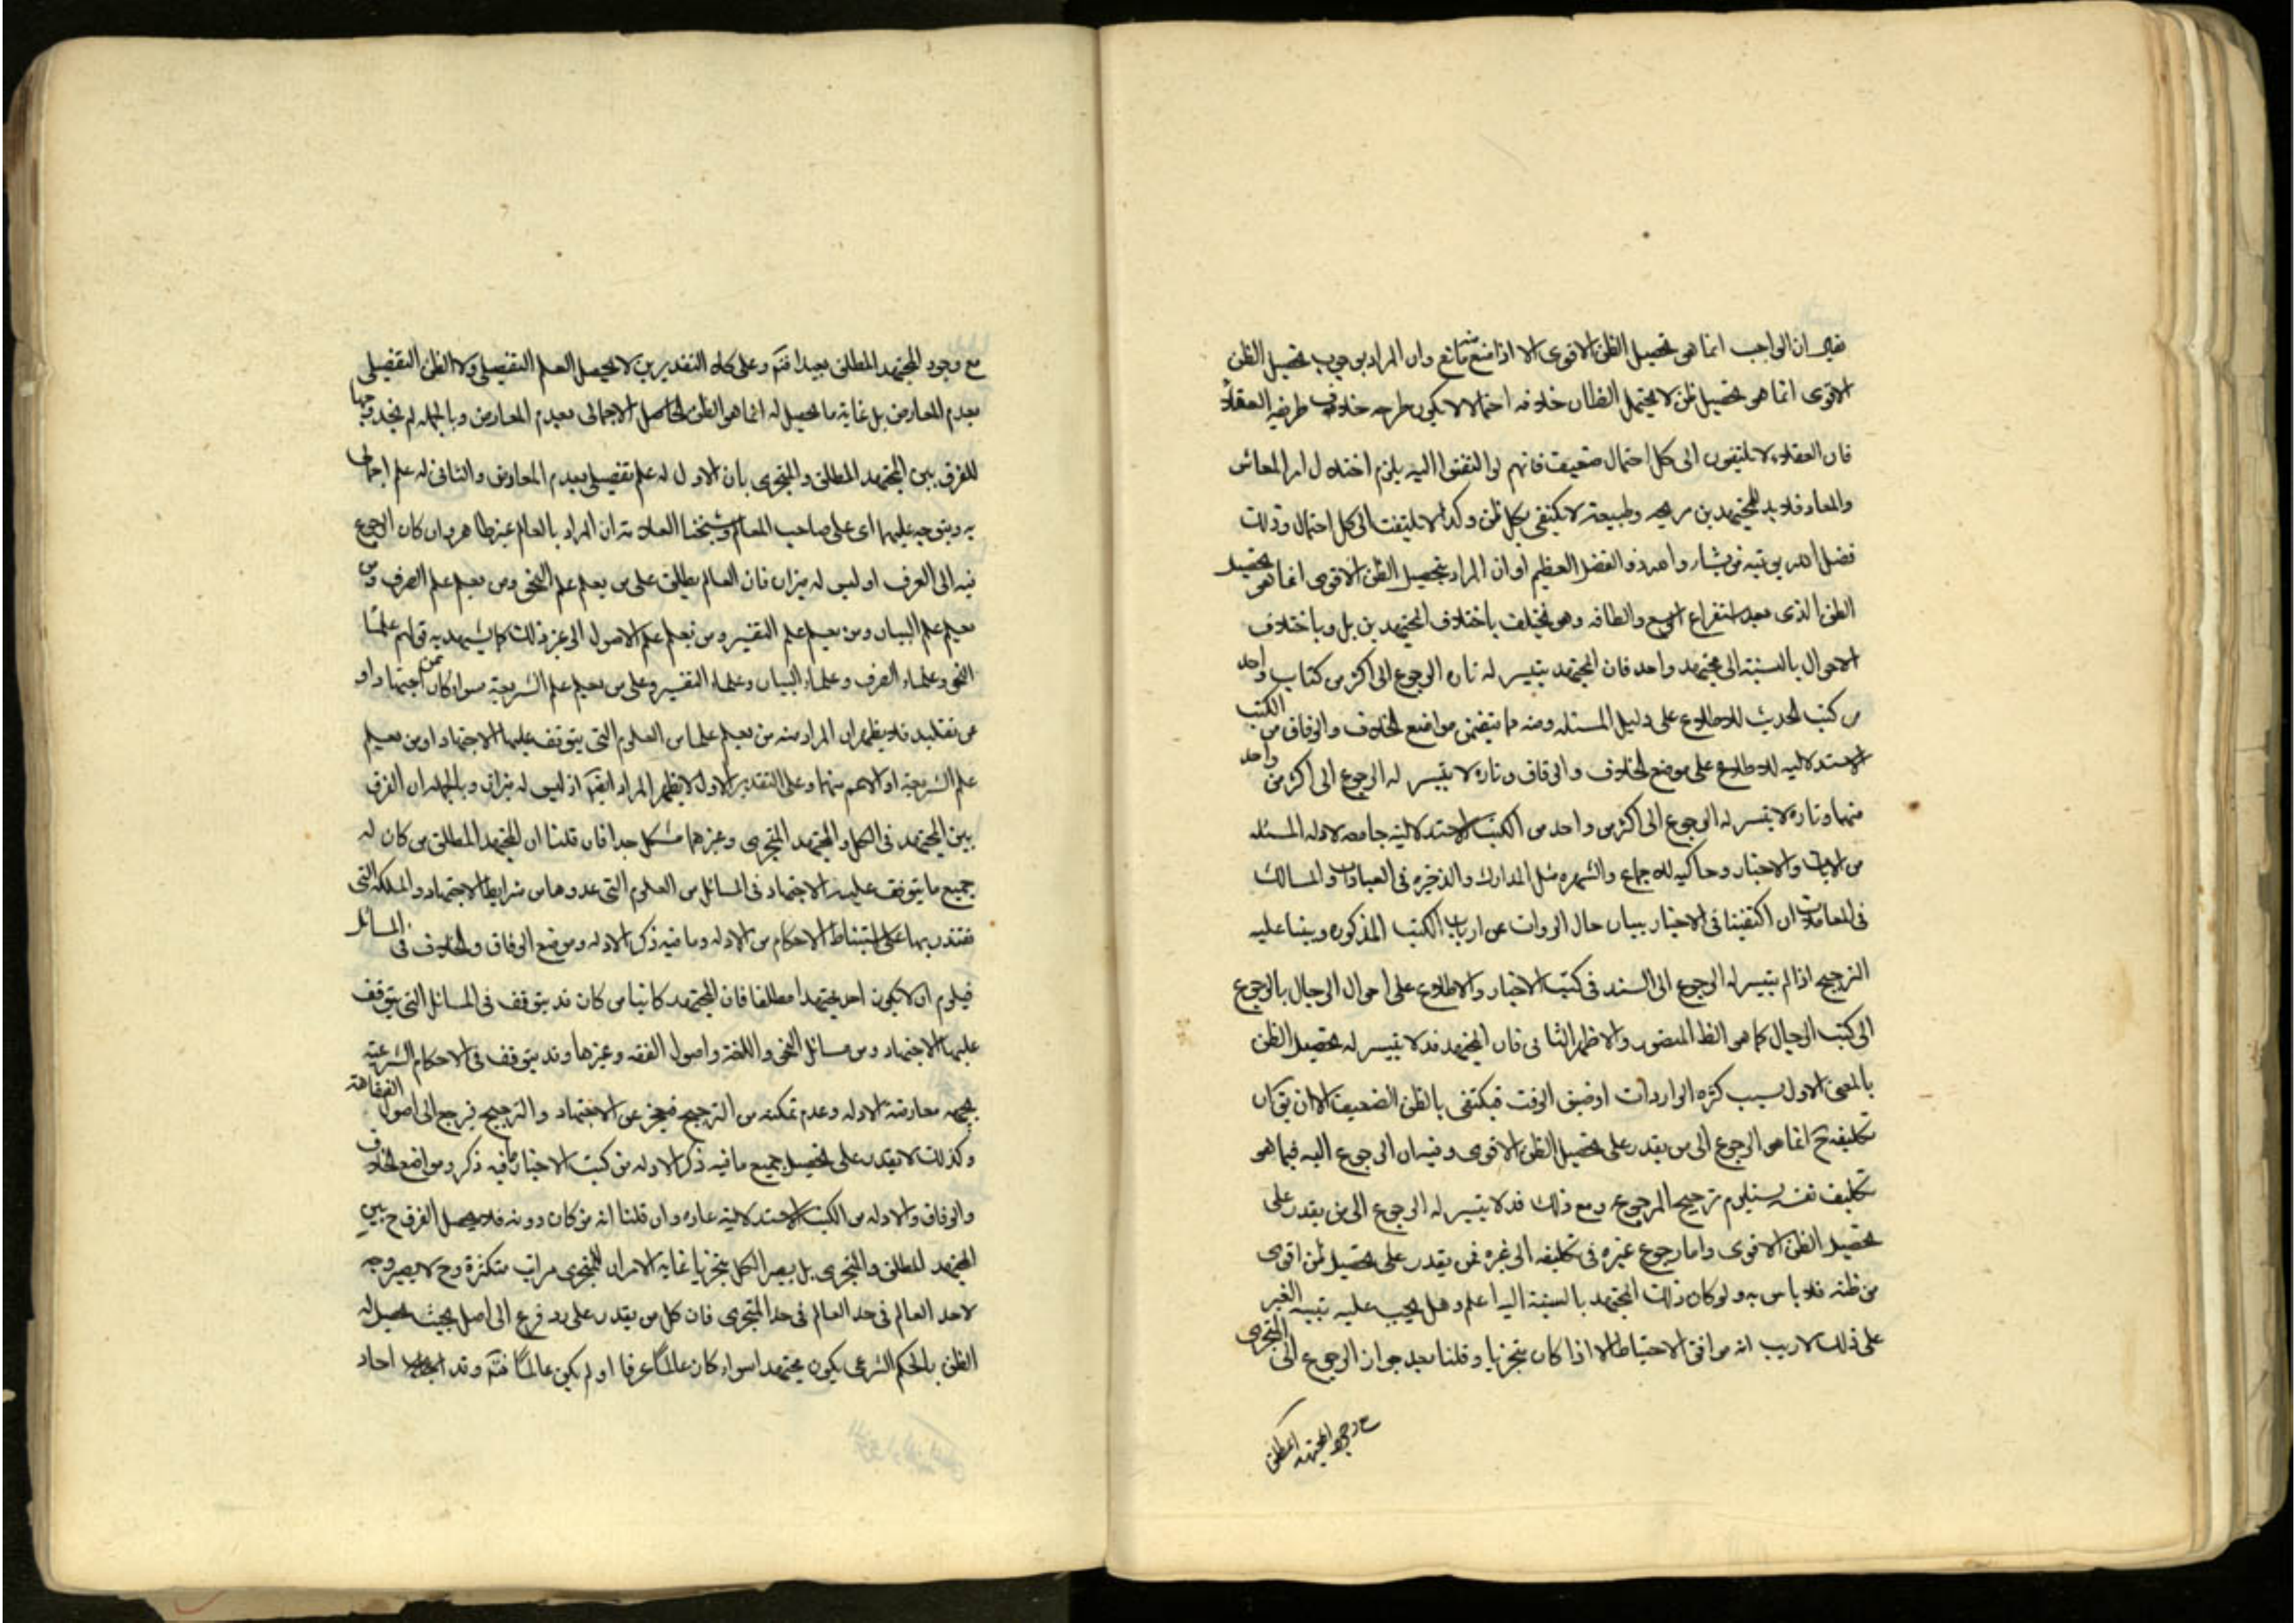 ان الواجب انما هو تحصيل الظن الاقوى الا اذا منع منه مانع وان المراد بوجوب تحصيل الظن
الاقوى انما هو تحصيل ظن لا يحتمل الظان خلافه احتمالا لا يكون طرحه خلاف طريقه العقلاء
فان العقلاء لا يلتفتون الى كل احتمال ضعيف فانهم لو التفتوا اليه يلزم اختلال امر المعاش
والمعاد فلا بد للمجتهدين من وطبيعة لا تكتفى بكل ظن وكذا لا يلتفت الى كل احتمال وذلك
فضل الله يؤتيه من يشاء والله ذو الفضل العظيم او ان المراد بتحصيل الظن الاقوى انما هو تحصيل
الظن الذى بعد استفراغ الوسع والطاقه وهو يختلف باختلاف المجتهدين بل وباختلاف
الاحوال بالنسبة الى مجتهد واحد فان المجتهد يتيسر له تارة الرجوع الى اكثر من كتاب واحد
من كتب الحديث للاطلاع على دليل المسئله ومنه ما يتضمن مواضع الخلاف والوفاق من الكتب
الاستدلاليه للاطلاع على موضع الخلاف والوفاق وتارة لا يتيسر له الرجوع الى اكثر من واحد
منها وتارة لا يتيسر له الرجوع الى اكثر من واحد من الكتب الاستدلالية جامعه لادله المسئله
من الايات والاخبار وحاكيه للاجماع والشهره مثل المدارك والذخيره فى العبادات والمسالك
فى المعاملات ان اكتفينا فى الاخبار ببيان حال الروات عن ارباب الكتب المذكوره وبنينا عليه
الترجيح اذا لم يتيسر له الرجوع الى السند فى كتب الاخبار والاطلاع على احوال الرجال بالرجوع
الى كتب الرجال كما هو الظ المنصور والاظهر الثانى فان المجتهد قد لا يتيسر له تحصيل الظن
بالمعنى الاول بسبب كثره الواردات او ضيق الوقت فيكتفى بالظن الضعيف الا ان يق ان
تكليفه ح انما هو الرجوع الى من يقدر على تحصيل الظن الاقوى وفيه ان الرجوع اليه فيما هو
تكليف نفسه يستلزم ترجيح المرجوع ومع ذلك قد لا يتيسر له الرجوع الى من يقدر على
تحصيل الظن الاقوى واما رجوع غيره فى تكليفه الى غيره ممن يقدر على تحصيل ظن اقوى
من ظنه فلا باس به ولو كان ذلك المجتهد بالنسبة اليه اعلم وهل يجب عليه تنبيه الغير
على ذلك لا ريب انه موافق الاحتياط الا اذا كان متجزيا وقلنا بعد جواز الرجوع الى المتجزى
مع وجود المجتهد المطلق
مع وجود المجتهد المطلق بعيدا فت‍ه وعلى كلا التقديرين لا يحصل العلم التفصيلى ولا الظن التفصيلى
بعدم المعارض بل غاية ما يحصل له انما هو الظن الحاصل الاجمالى بعدم المعارض وبالجمله لم نجد وجها
للفرق بين المجتهد المطلق والمتجزى بان الاول له علم تفصيلى بعدم المعارض والثانى له علم اجمالى
به ويتوجه عليهما اى على صاحب المعالم وشيخنا العلامة ان المراد بالعالم غير ظاهر وان كان الرجوع
فيه الى العرف اذ ليس له ميزان فان العالم يطلق على من يعلم علم النحو ومن يعلم علم الصرف ومن
يعلم علم البيان ومن يعلم علم التفسير ومن يعلم علم الاصول الى غير ذلك كما يشهد به قولهم علماء
النحو وعلماء الصرف وعلماء البيان وعلماء التفسير وعلى من يعلم علم الشريعة سواء كان عن اجتهاد او
عن تقليد فلا يظهر ان المراد منه من يعلم علما من العلوم التى يتوقف عليها الاجتهاد او من يعلم
علم الشريعة او الاعم منهما وعلى التقدير الاول لا يظهر المراد ايضا اذ ليس له ميزان وبالجمله ان الفرق
بين المجتهد فى الكل والمجتهد المتجزى وغيرهما مشكل جدا فان قلنا ان المجتهد المطلق من كان له
جميع ما يتوقف عليه الاجتهاد فى المسائل من العلوم التى عدوها من شرايط الاجتهاد والملكة التى
يقتدر بها على استنباط الاحكام من الادله وما فيه ذكر الادله وموضع الوفاق والخلاف فى المسائل
فيلزم ان لا يكون احد مجتهدا مطلقا فان المجتهد كائنا من كان قد يتوقف فى المسائل التى يتوقف
عليها الاجتهاد ومن مسائل النحو واللغة واصول الفقه وغيرها وقد يتوقف فى الاحكام الشرعية
بجهة معارضة الادله وعدم تمكنه من الترجيح فيعجز عن الاجتهاد والترجيح فيرجع الى اصول الفقاهة
وكذلك لا يقدر على تحصيل جميع ما فيه ذكر الادله من كتب الاخبار وما فيه ذكر مواضع الخلاف
والوفاق والادله من الكتب الاستدلالية عادة وان قلنا انه من كان دونه فلا يحصل الفرق ح بين
المجتهد المطلق والمتجزى بل يصير الكل متجزيا غاية الامر ان للمتجزى مراتب متكثرة وح لا يصير وجه
لاحد العالم فى حد العالم فى حد المتجزى فان كل من يقدر على رد فرع الى اصل بحيث يحصل له
الظن بالحكم الشرعى يكون مجتهدا سواء كان عالما عرفا او لم يكن عالما فت‍ه وقد اجاد